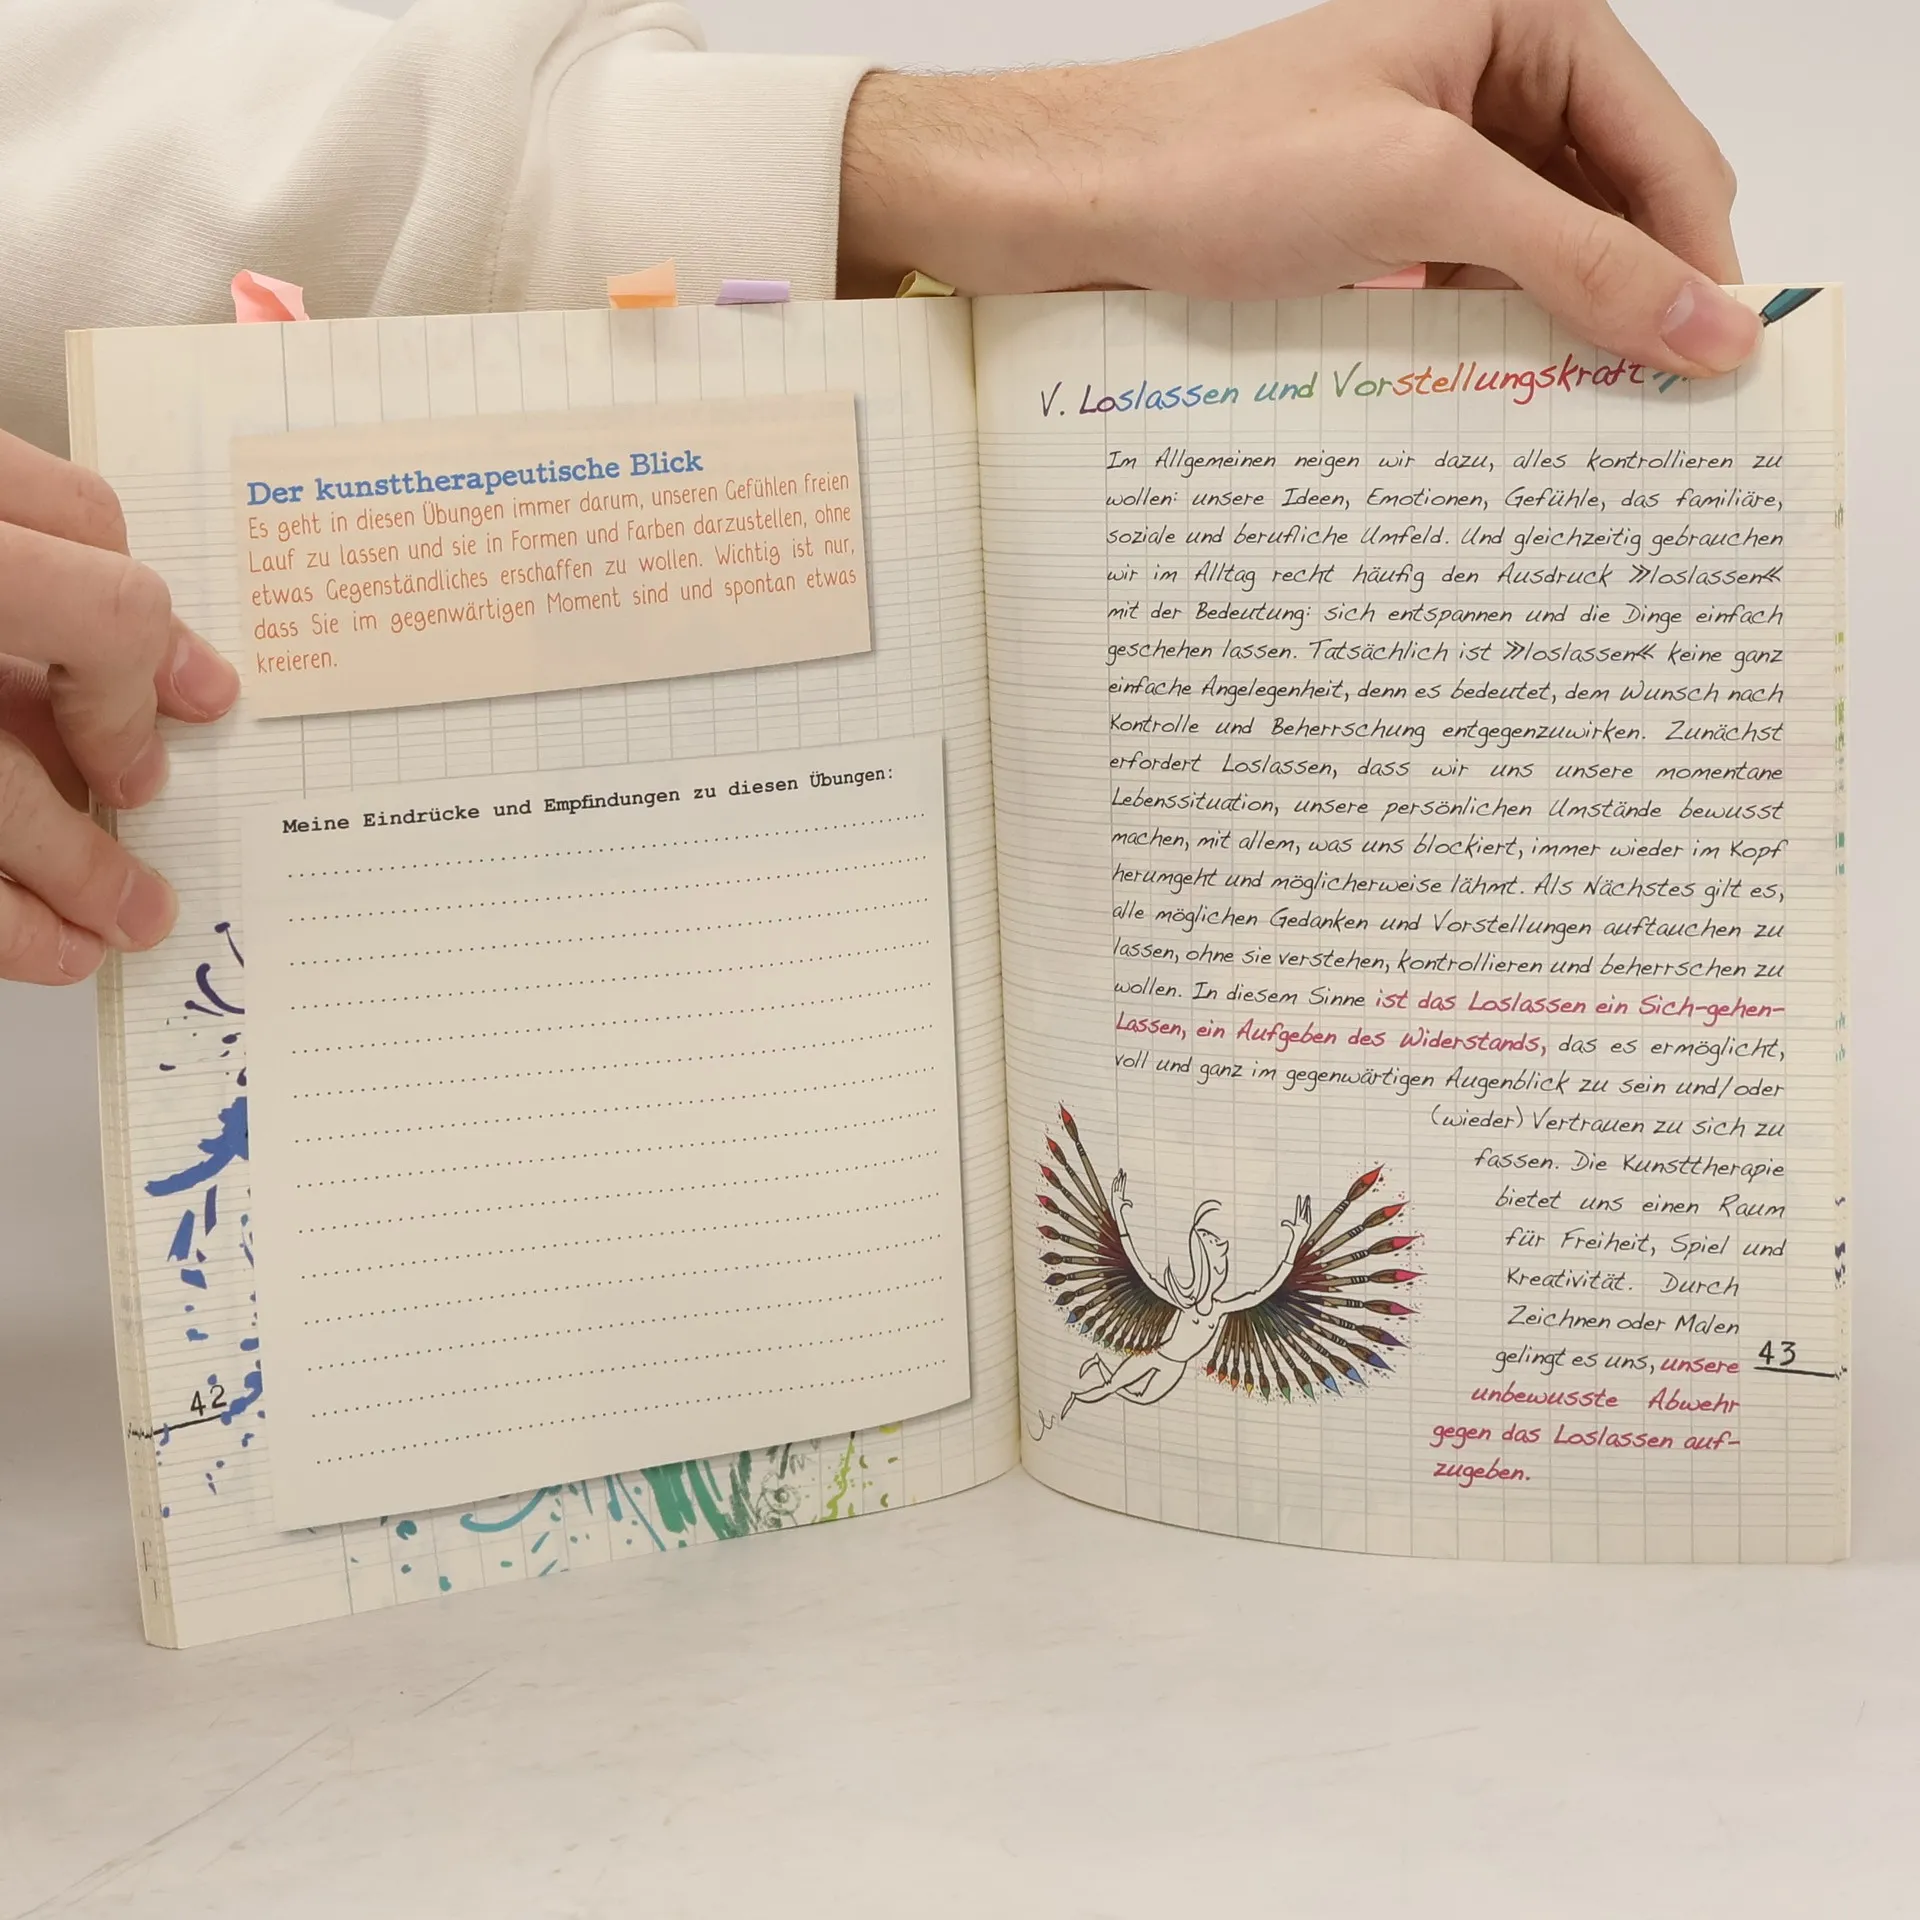 Der kunsttherapeutische Blick
Es geht in diesen Übungen immer darum, unseren Gefühlen freien
Lauf zu lassen und sie in Formen und Farben darzustellen, ohne
etwas Gegenständliches erschaffen zu wollen. Wichtig ist nur,
dass Sie im gegenwärtigen Moment sind und spontan etwas
kreieren.
Meine Eindrücke und Empfindungen zu diesen Übungen:
42
V. Loslassen und Vorstellungskraft
Im Allgemeinen neigen wir dazu, alles kontrollieren zu
wollen: unsere Ideen, Emotionen, Gefühle, das familiäre,
soziale und berufliche Umfeld. Und gleichzeitig gebrauchen
wir im Alltag recht häufig den Ausdruck »loslassen«
mit der Bedeutung: sich entspannen und die Dinge einfach
geschehen lassen. Tatsächlich ist »loslassen« keine ganz
einfache Angelegenheit, denn es bedeutet, dem Wunsch nach
Kontrolle und Beherrschung entgegenzuwirken. Zunächst
erfordert Loslassen, dass wir uns unsere momentane
Lebenssituation, unsere persönlichen Umstände bewusst
machen, mit allem, was uns blockiert, immer wieder im Kopf
herumgeht und möglicherweise lähmt. Als Nächstes gilt es,
alle möglichen Gedanken und Vorstellungen auftauchen zu
lassen, ohne sie verstehen, kontrollieren und beherrschen zu
wollen. In diesem Sinne ist das Loslassen ein Sich-gehen-
Lassen, ein Aufgeben des Widerstands, das es ermöglicht,
voll und ganz im gegenwärtigen Augenblick zu sein und/oder
(wieder) Vertrauen zu sich zu
fassen. Die Kunsttherapie
bietet uns einen Raum
für Freiheit, Spiel und
Kreativität. Durch
Zeichnen oder Malen
gelingt es uns, unsere
unbewusste Abwehr
gegen das Loslassen auf-
zugeben.
43